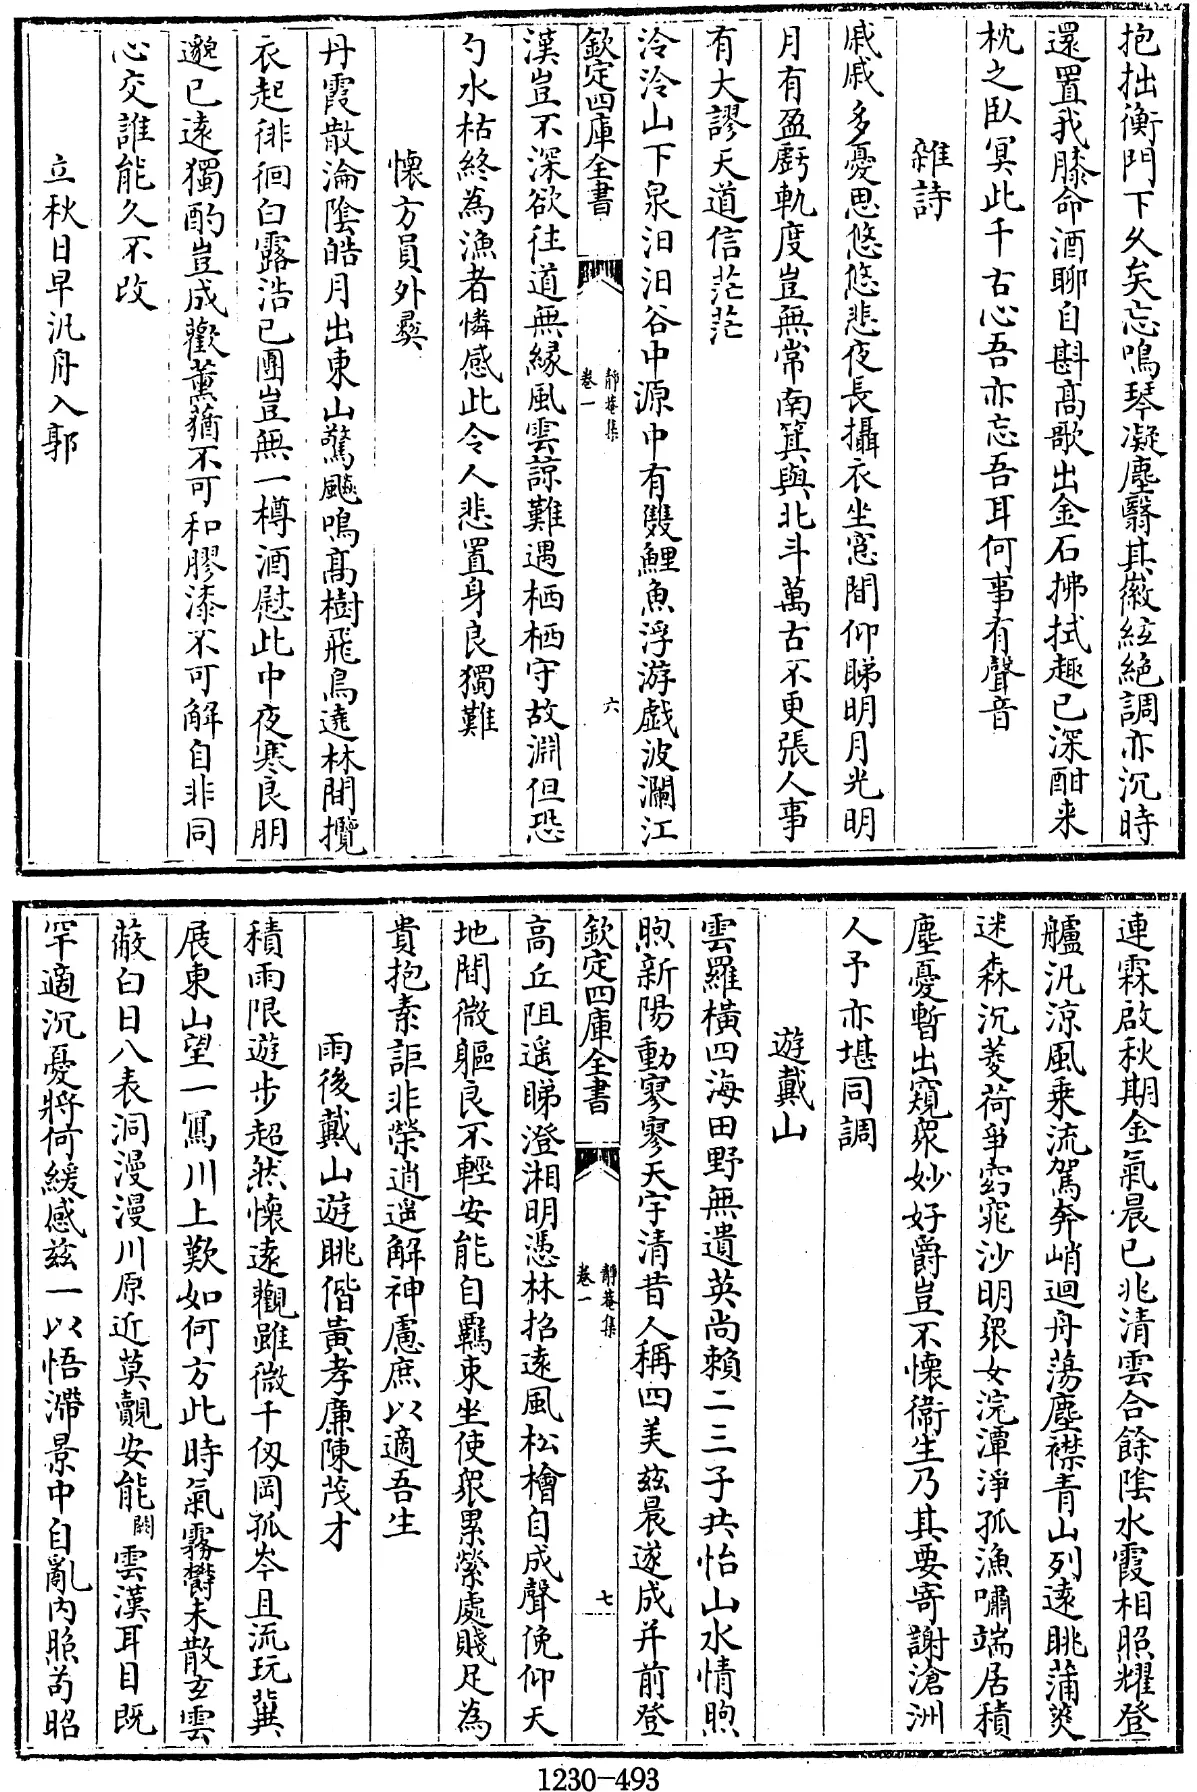 抱拙衡門下久矣忘鳴琴凝塵翳其徽絃絶調亦沉時
還置我膝命酒聊自斟高歌出金石拂拭趣已深酣来
枕之臥冥此千古心吾亦忘吾耳何事有聲音
雜詩
戚戚多憂思悠悠悲夜長攝衣坐窓間仰睇明月光明
月有盈虧軌度豈無常南箕與北斗萬古不更張人事
有大謬天道信茫茫
泠泠山下泉汨汨谷中源中有雙鯉魚浮游戲波瀾江
欽定四庫全書
静菴集
卷一
六
漢豈不深欲往道無緣風雲諒難遇栖栖守故淵但恐
勺水枯終為漁者憐感此令人悲置身良獨難
懷方員外彛
丹霞散淪陰皓月出東山驚飈鳴高樹飛鳥遶林間攬
衣起徘徊白露浩已團豈無一樽酒慰此中夜寒良朋
邈已遠獨酌豈成歡薰蕕不可和膠漆不可解自非同
心交誰能久不改
立秋日早汎舟入郭
連霖啟秋期金氣晨已兆清雲合餘陰水霞相照耀登
艫汎涼風乗流駕奔峭迴舟蕩塵襟青山列遠眺蒲爽
迷森沉菱荷爭窈窕沙明衆女浣潭淨孤漁嘯端居積
塵憂暫出窺衆妙好爵豈不懷衞生乃其要寄謝滄洲
人予亦堪同調
遊戴山
雲羅橫四海田野無遺英尚賴二三子共怡山水情煦
煦新陽動寥寥天宇清昔人稱四美兹晨遂成并前登
欽定四庫全書
静菴集
卷一
七
高丘阻遥睇澄湘明憑林招遠風松檜自成聲俛仰天
地間微軀良不輕安能自羈束坐使衆累縈處賤足為
貴抱素詎非榮逍遥解神慮庶以適吾生
雨後戴山遊眺偕黄孝廉陳茂才
積雨限遊步超然懷遠觀雖微千仭岡孤岑且流玩冀
展東山望一寫川上歎如何方此時氣霧欝未散玄雲
蔽白日八表洞漫漫川原近莫覿安能闕雲漢耳目既
罕適沉憂將何緩感兹一以悟滯景中自亂内照苟昭
1230-493